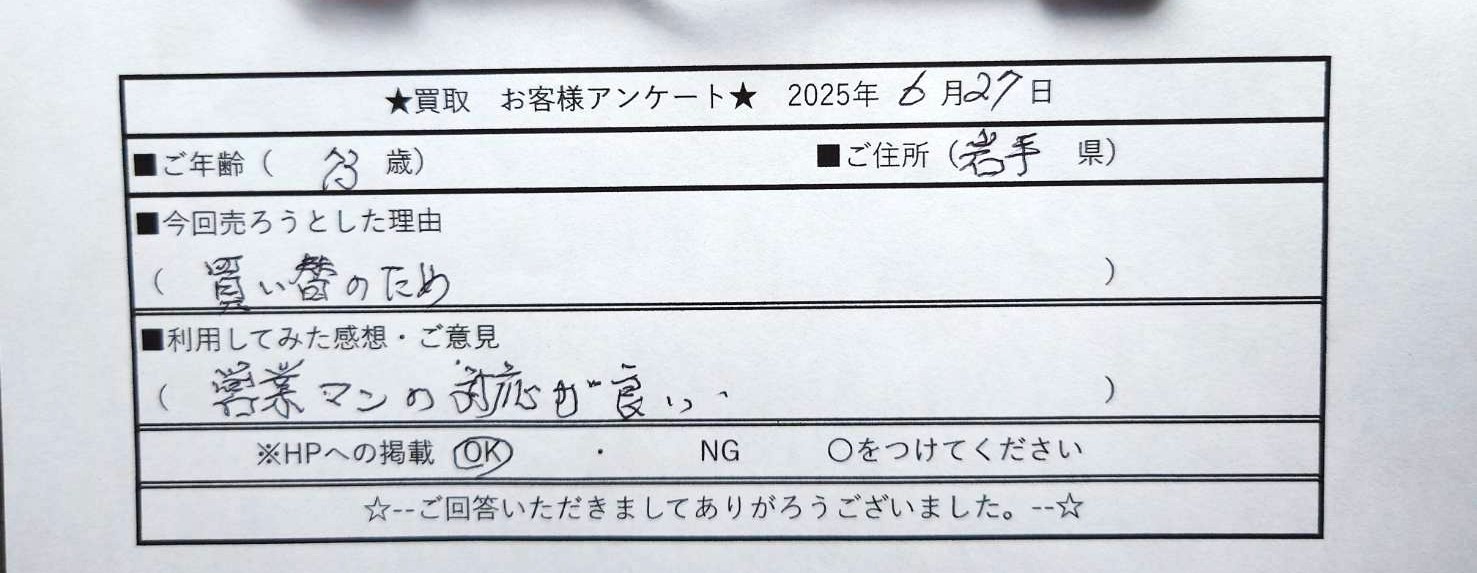 ★買取 お客様アンケート★ 2025年 6月27日
■ご年齢( 歳) ■ご住所(岩手 県)
■今回売ろうとした理由
( 買い替のため )
■利用してみた感想・ご意見
( 営業マンの対応が良い. )
※HPへの掲載 OK ・ NG ○をつけてください
☆--ご回答いただきましてありがろうございました。--☆